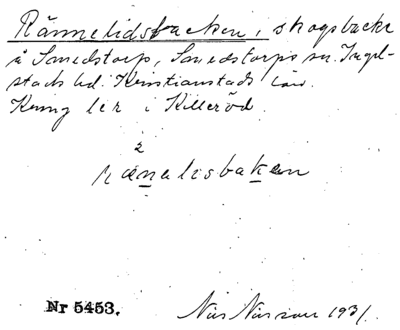 Rännelidsbacken, skogsbacke
å Smedstorp, Smedstorps sn. Ingel-
stads hd. Kristianstads län.
ler i Killeröd.
2
ränalisbakan
Nr 5453.
Nils Nilsson 1931.